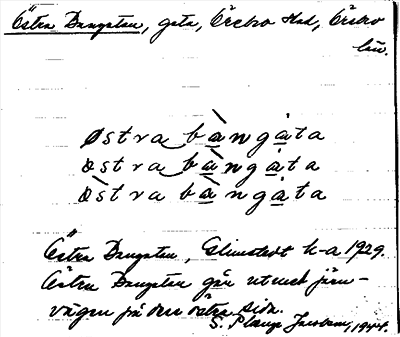 Östra Bangatan, gata, Örebro stad, Örebro
län.
østra bàngåta
østra bàngåta
østra bàngåta
Östra Bangatan, Glimstedt k-a 1929.
Östra Bangatan går utmed järn-
vägen på den östra sidan.
S. Plange Jacobson, 1944.